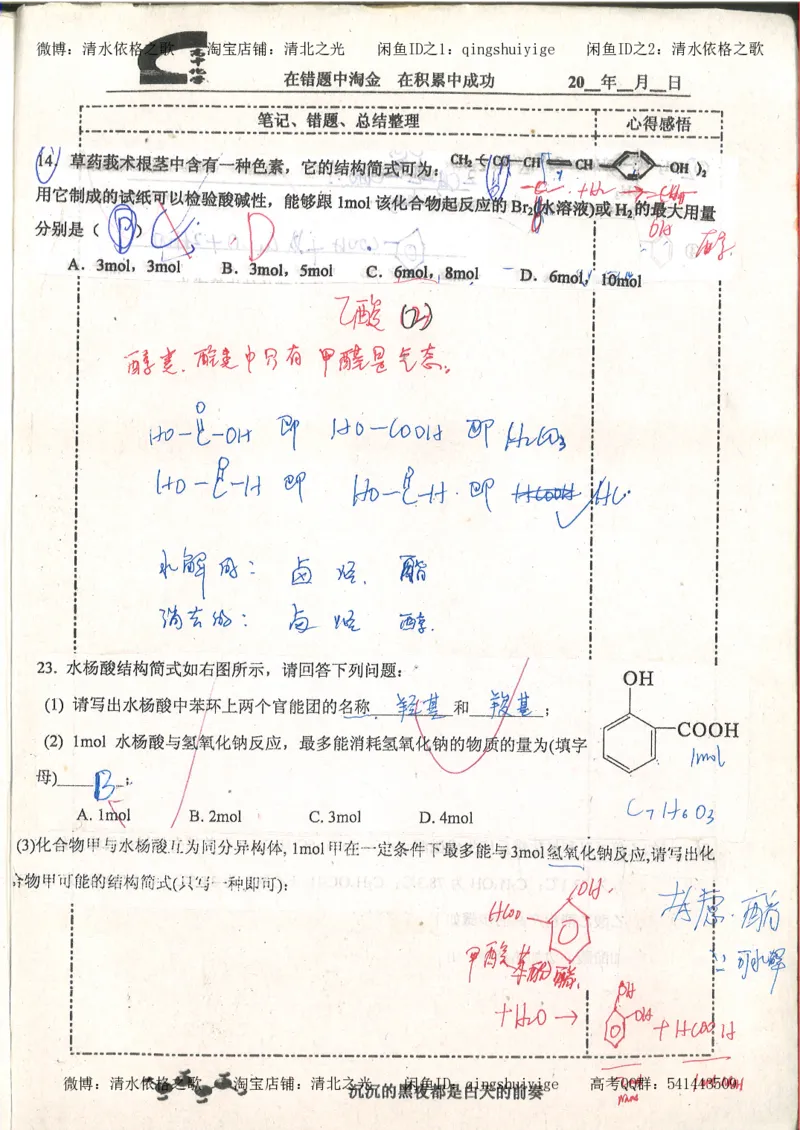 微博：清水依格之歌 淘宝店铺：清北之光 闲鱼ID之1：qingshuiyige 闲鱼ID之2：清水依格之歌
高中化学
在错题中淘金 在积累中成功 20__年__月__日
笔记、错题、总结整理 心得感悟
14. 草药莪术根茎中含有一种色素，它的结构简式可为：CH₂ (CO CH CH OH )₂
用它制成的试纸可以检验酸碱性，能够跟 1mol 该化合物起反应的 Br₂(水溶液)或 H₂的最大用量
分别是（ ） C D
A．3mol，3mol B．3mol，5mol C．6mol，8mol D．6mol，10mol
乙酸
醇类、醛类中只有甲醛是气态。
HO-C-OH 即 HO-COOH 即 H₂CO₃
O
HO-C-H 即 HO-C-H 即
水解的：卤烃、酯
消去的：卤烃 醇.
23．水杨酸结构简式如右图所示，请回答下列问题：
OH
COOH
(1) 请写出水杨酸中苯环上两个官能团的名称 羟基 和 羧基 ；
(2) 1mol 水杨酸与氢氧化钠反应，最多能消耗氢氧化钠的物质的量为(填字
1mol
母) B ；
A. 1mol B. 2mol C. 3mol D. 4mol
C₇H₆O₃
(3)化合物甲与水杨酸互为同分异构体，1mol甲在一定条件下最多能与3mol氢氧化钠反应，请写出化
合物甲可能的结构简式(只写一种即可)：
OH
HCOO-
考虑、酯
甲酸苯酚酯.
∵可水解
+H₂O →
OH
OH
+HCOOH
微博：清水依格之歌 淘宝店铺：清北之光 闲鱼ID：qingshuiyige 高考QQ群：541443509
沉沉的黑夜都是白天的前奏